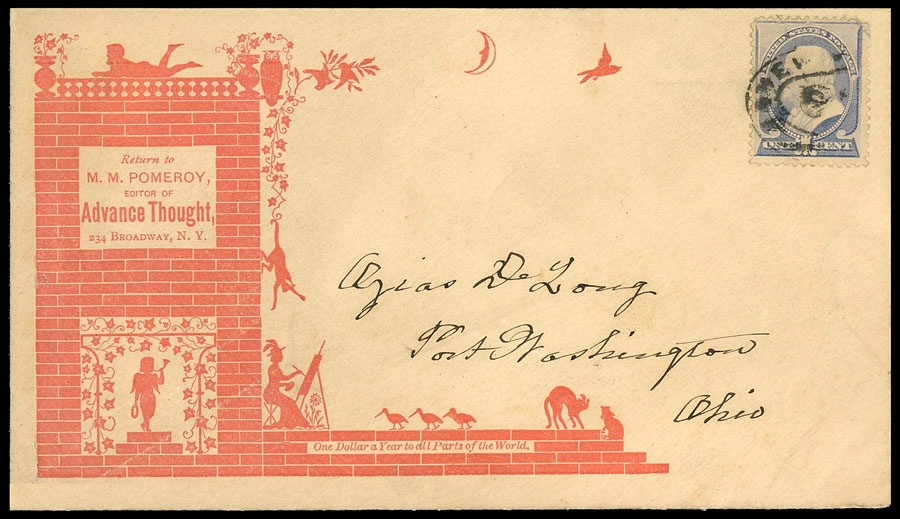 UNITED STATES POSTAGE
ONE CENT
Return to
M. M. POMEROY,
EDITOR OF
Advance Thought,
234 BROADWAY, N. Y.
Azias De Long
Port Washington
Ohio
One Dollar a Year to all Parts of the World.